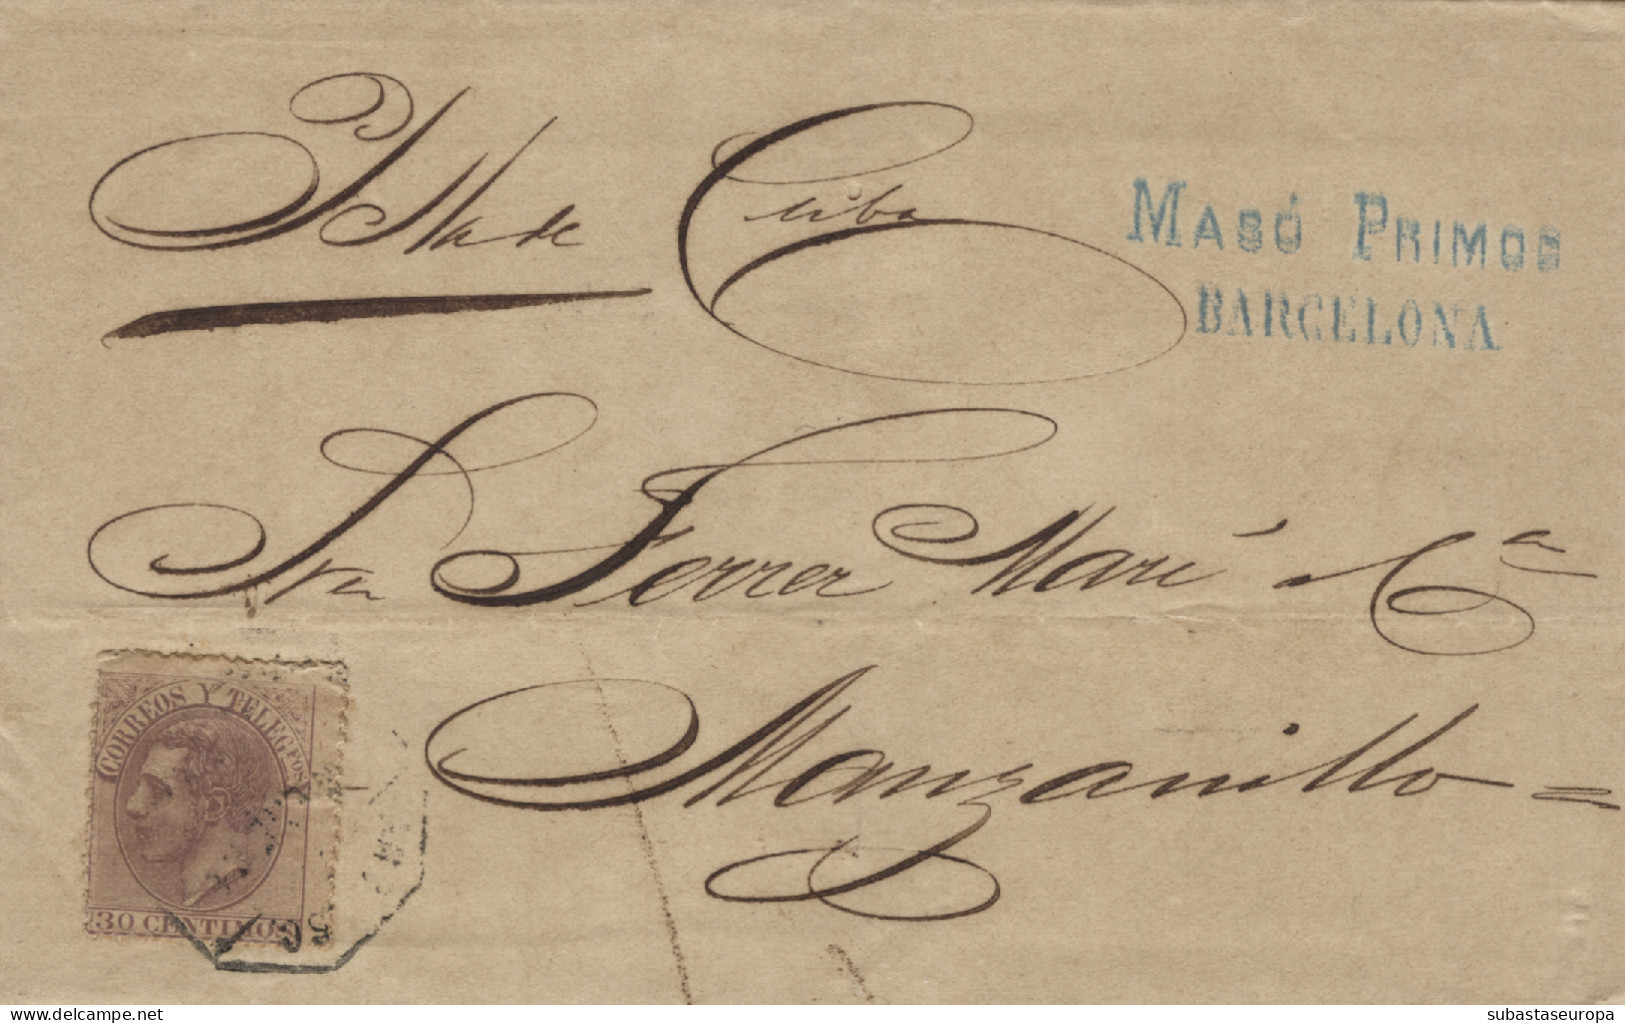 Isla de Cuba
MASÓ PRIMOS
BARCELONA
Sra Ferrer Mari é Cª
Manzanillo =
CORREOS Y TELEGFOS
30 CENTIMOS
delcampe.net
subastaseuropa